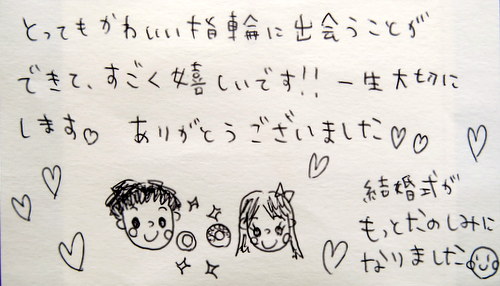 とってもかわいい指輪に出会うことが
できて、すごく嬉しいです!! 一生大切に
します♡ ありがとうございました♡♡
結婚式が
もっとたのしみに
なりました